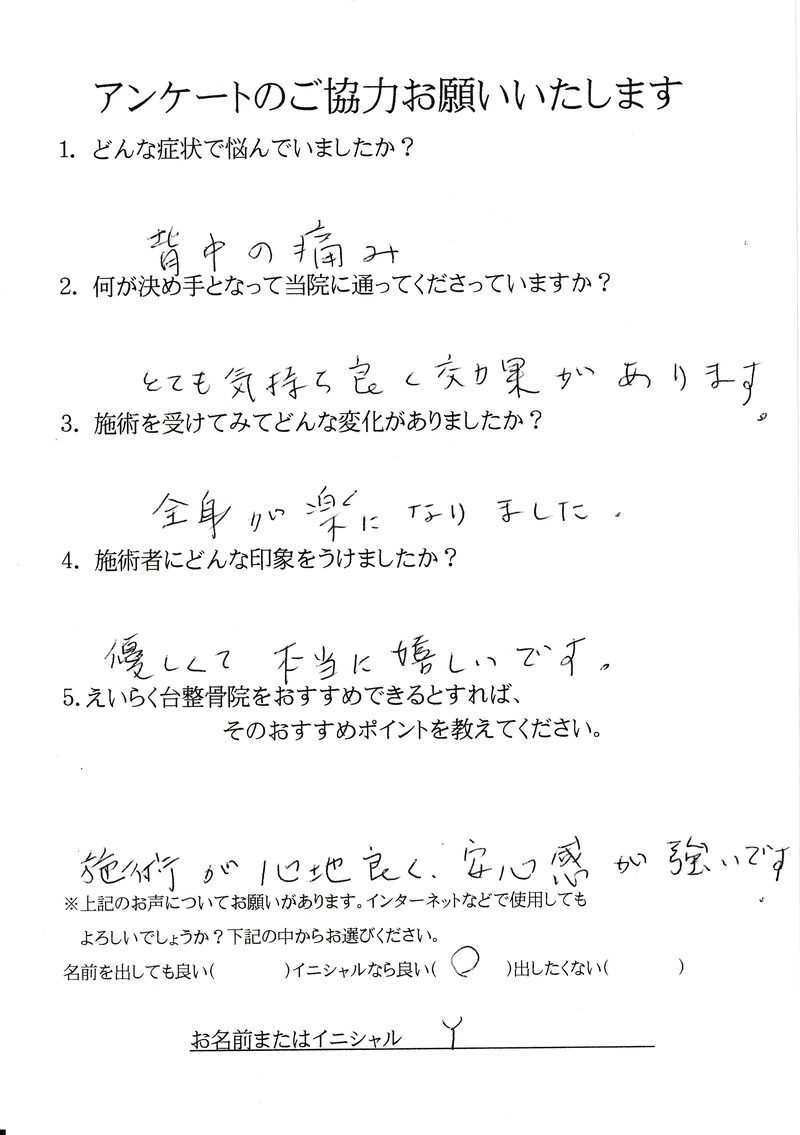 アンケートのご協力お願いいたします
1. どんな症状で悩んでいましたか？
背中の痛み
2. 何が決め手となって当院に通ってくださっていますか？
とても気持ち良く効果があります。
3. 施術を受けてみてどんな変化がありましたか？
全身が楽になりました.
4. 施術者にどんな印象をうけましたか？
優しくて本当に嬉しいです。
5.えいらく台整骨院をおすすめできるとすれば、
そのおすすめポイントを教えてください。
施術が心地良く、安心感が強いです。
※上記のお声についてお願いがあります。インターネットなどで使用しても
よろしいでしょうか？下記の中からお選びください。
名前を出しても良い(　　　)イニシャルなら良い(　○　)出したくない(　　　)
お名前またはイニシャル　Y